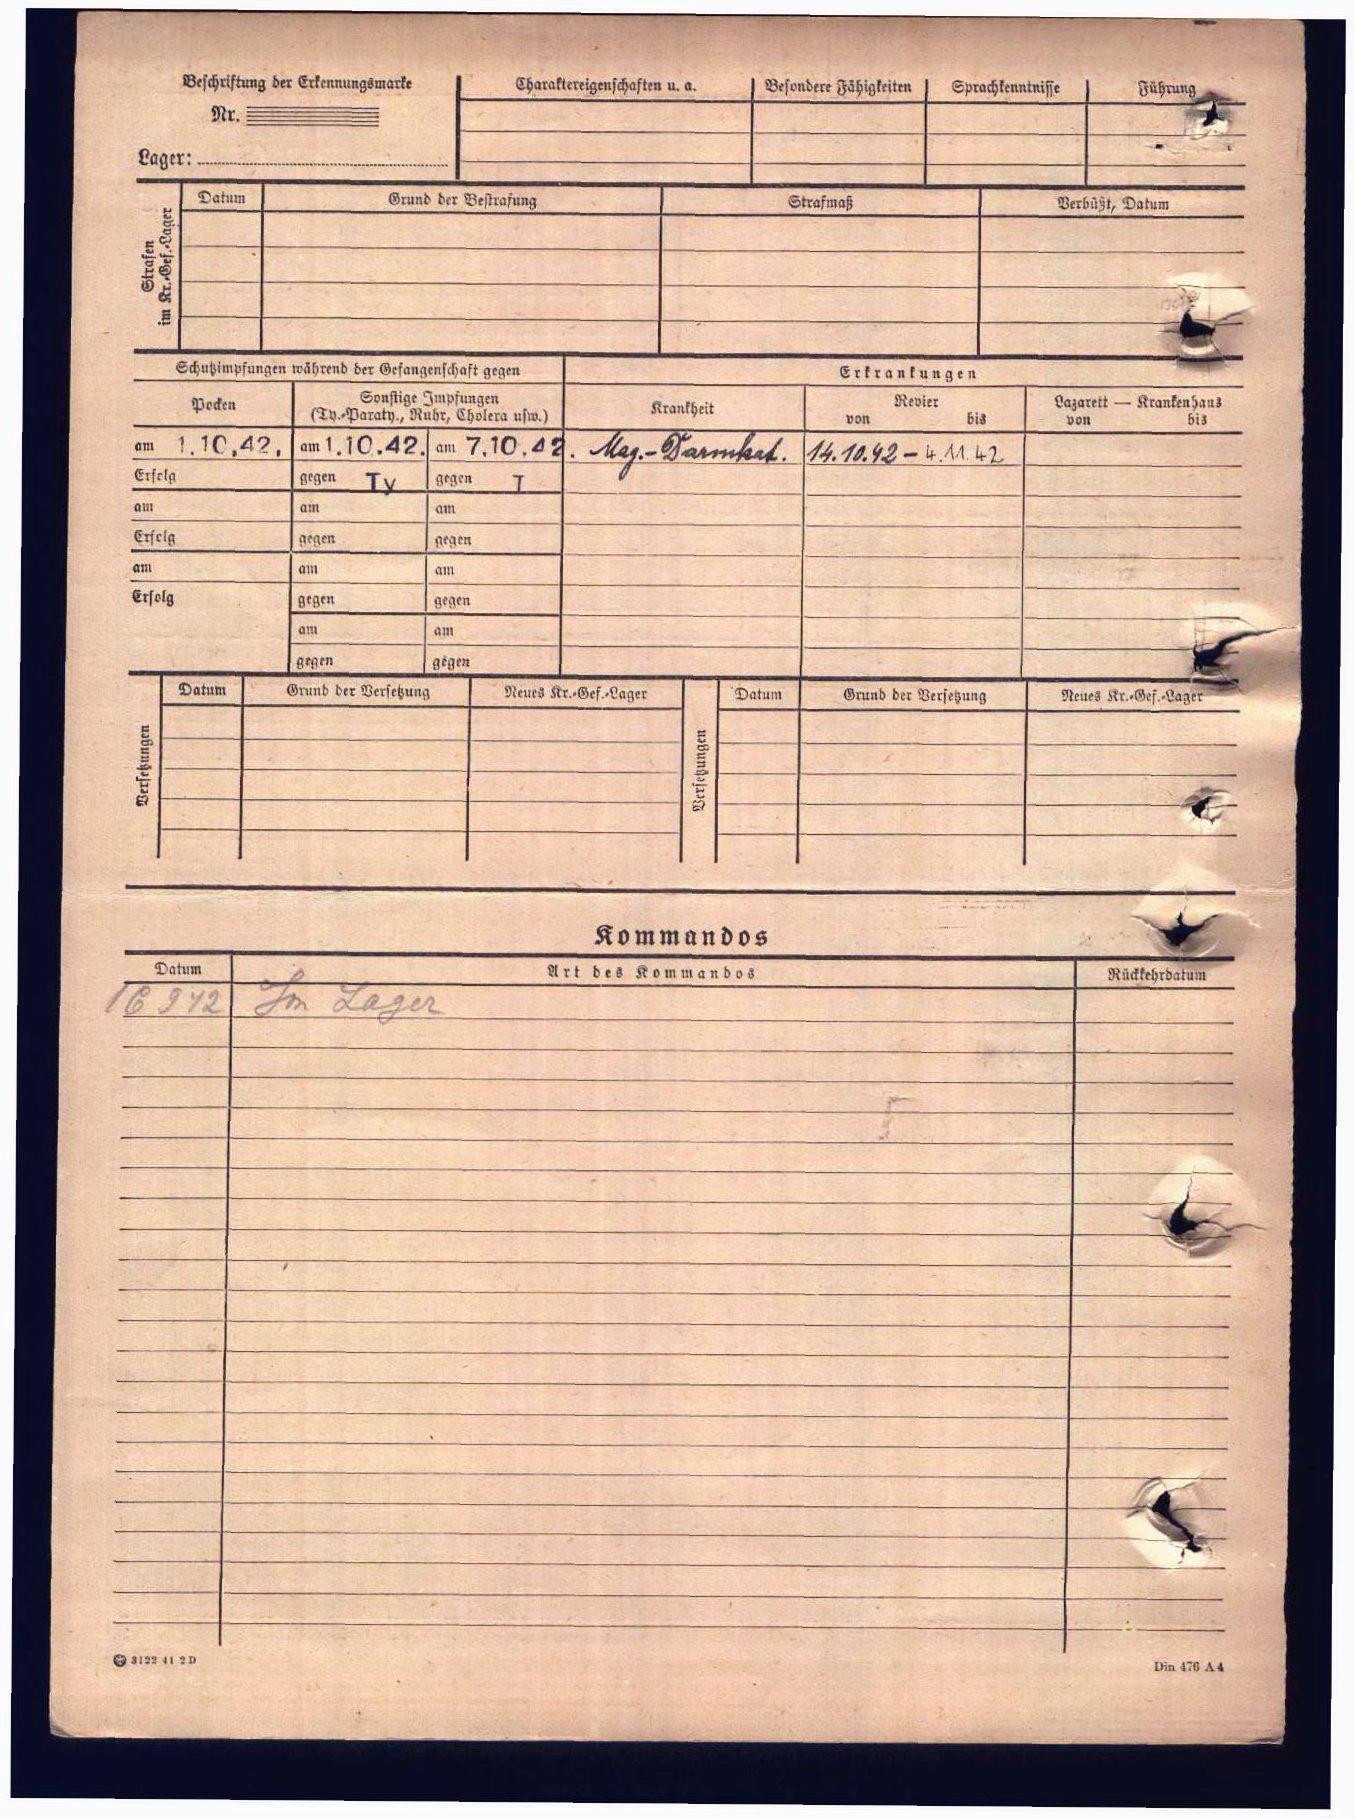 Beschriftung der Erkennungsmarke
Nr.
Lager:
Charaktereigenschaften u. a. Besondere Fähigkeiten Sprachkenntnisse Führung
Strafen
im Kr.-Gef.-Lager
Datum Grund der Bestrafung Strafmaß Verbüßt, Datum
Schutzimpfungen während der Gefangenschaft gegen Erkrankungen
Pocken Sonstige Impfungen Krankheit Revier Lazarett — Krankenhaus
(Ty.-Paraty., Ruhr, Cholera usw.) von bis von bis
am 1.10.42. am 1.10.42. am 7.10.42. Mag.-Darmkat. 14.10.42 – 4.11.42
Erfolg gegen Ty gegen T
am am am
Erfolg gegen gegen
am am am
Erfolg gegen gegen
am am
gegen gegen
Versetzungen
Datum Grund der Versetzung Neues Kr.-Gef.-Lager
Versetzungen
Datum Grund der Versetzung Neues Kr.-Gef.-Lager
Kommandos
Datum Art des Kommandos Rückkehrdatum
16 9 42 Im Lager
3122 41 2D
Din 476 A4